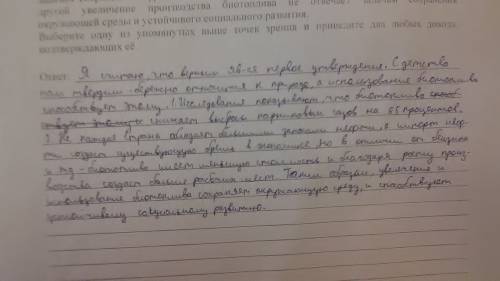 другой увеличение производства биотоплива не отвечает целям сохранения
окружающей среды и устойчивого социального развития.
Выберите одну из упомянутых выше точек зрения и приведите два любых довода,
подтверждающих её
Ответ: Я считаю, что верным яв-ся первое утверждение. С детства
нам твердили - бережно относится к природе, а использование биотоплива
способствует этому. 1. Исследования показывают, что биотопливо
снижает выброс парниковых газов на 65 процентов.
2. Не каждая страна обладает большими запасами нефти и импорт неф-
ти создает существующую брешь в экономике. Но в отличии от бензина
и тд - биотопливо имеет меньшую стоимость и благодаря росту произ-
водства создает больше рабочих мест. Таким образом, увеличение и
использование биотоплива сохраняет окружающую среду, и способствуют
социальному развитию.